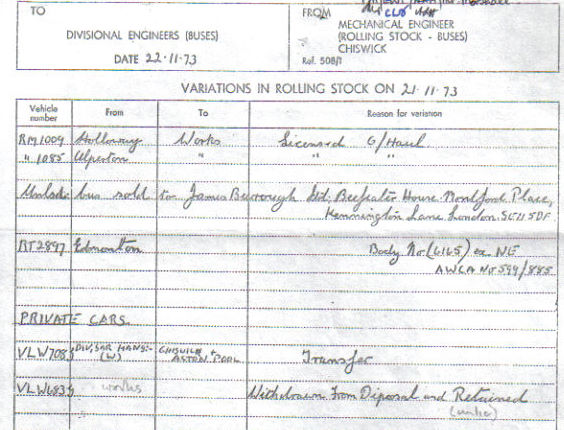 TO
FROM
DIVISIONAL ENGINEERS (BUSES)
MECHANICAL ENGINEER
(ROLLING STOCK - BUSES)
CHISWICK
DATE 22.11.73
Ref. 508/1
VARIATIONS IN ROLLING STOCK ON 21.11.73
Vehicle number From To Reason for variation
RM1009 Holloway Works Licensed O/Haul
" 1085 Alperton " " "
bus sold to James Burrough Ltd. Beefeater House Montford Place,
Kennington Lane London SE11 5DF
RT2897 Edmonton Body No (6165) ex NE
AWCA No 599/885
PRIVATE CARS
VLW708J (W) CHISWICK + ASTON POOL Transfer
VLW683J works Withdrawn From Disposal and Retained